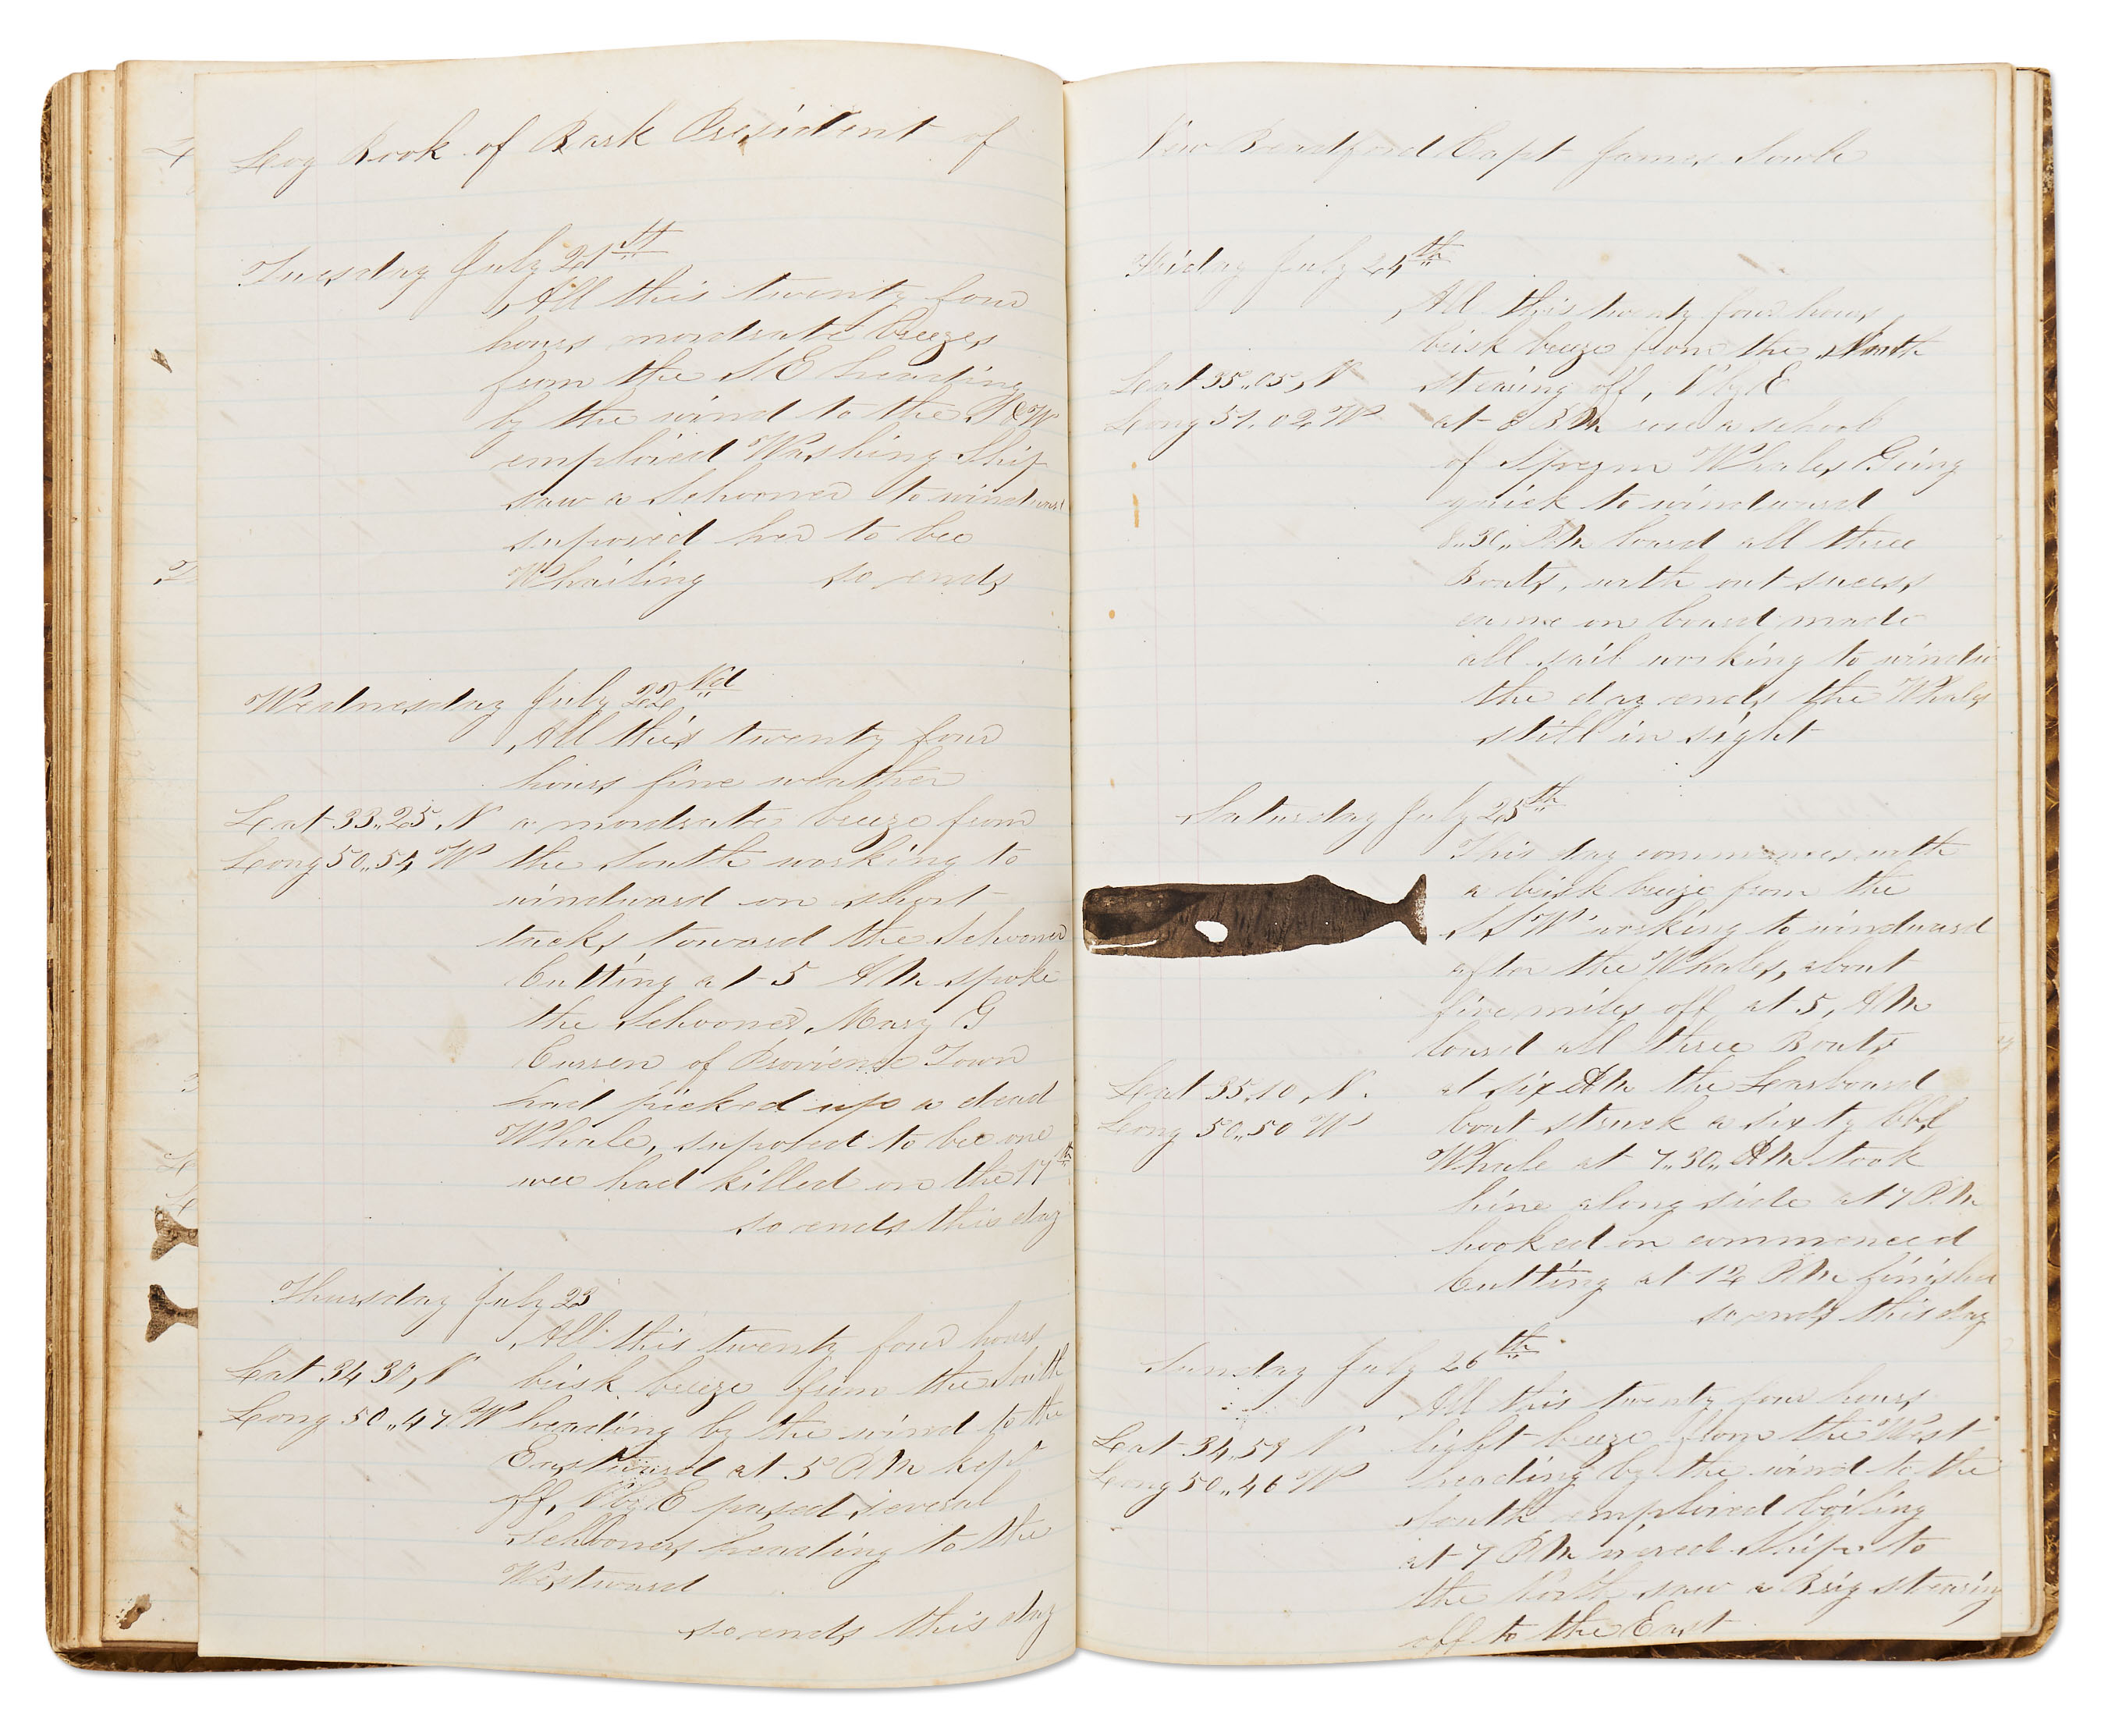 Log Book of Bark President of
Tuesday July 21st
All this twenty four
hours mordrate breezes
from the SE heading
by the wind to the S&W
employed Washing Ship
saw a Schooner to windward
suposed her to bee
Whailing so ends
Wednesday July 22Nd
All this twenty four
hours fine weather
Lat 33..25, N a mordrate breeze from
Long 50..54 W the South working to
windward on short
tacks toward the Schooner
Cutting at 5 AM spoke
the Schooner, Mary G
Curren of Provience Town
had picked up a dead
Whale, suposed to bee one
wee had killed on the 17th
so ends this day
Thursday July 23
All this twenty four hours
Lat 34 30, N brisk breeze from the South
Long 50..47, W heading by the wind to the
Eastward at 5 PM kept
off, NbyE pased several
Schooners heading to the
Westward
so ends this day
New Beadford Capt James Sowle
Friday July 24th
All this twenty four hours,
brisk breeze from the South
Lat 35..05, N stearing off, NbyE
Long 51.02 W at 8 AM saw a school
of Sperm Whales Going
quick to windward
8..30.. AM loard all three
Boats, with out sucess
came on board made
all sail working to windw
the day ends the Whales
still in sight
Saturday July 25th
This day commences with
a brisk breeze from the
SSW working to windward
after the Whales, about
five miles off at 5, AM
loard all three Boats
Lat 35,10, N. at six AM the Larboard
Long 50..50 W boat struck a sixty bbl
Whale at 7..30.. AM took
hine along side at 7 PM
hooked on commenced
Cutting at 12 PM finished
so ends this day
Sunday July 26th
All this twenty four hours
Lat 34,59 N light breeze from the West
Long 50..46 W heading by the wind to the
South employed boiling
at 7 PM wered Ship to
the North saw a Brig stearing
off to the East